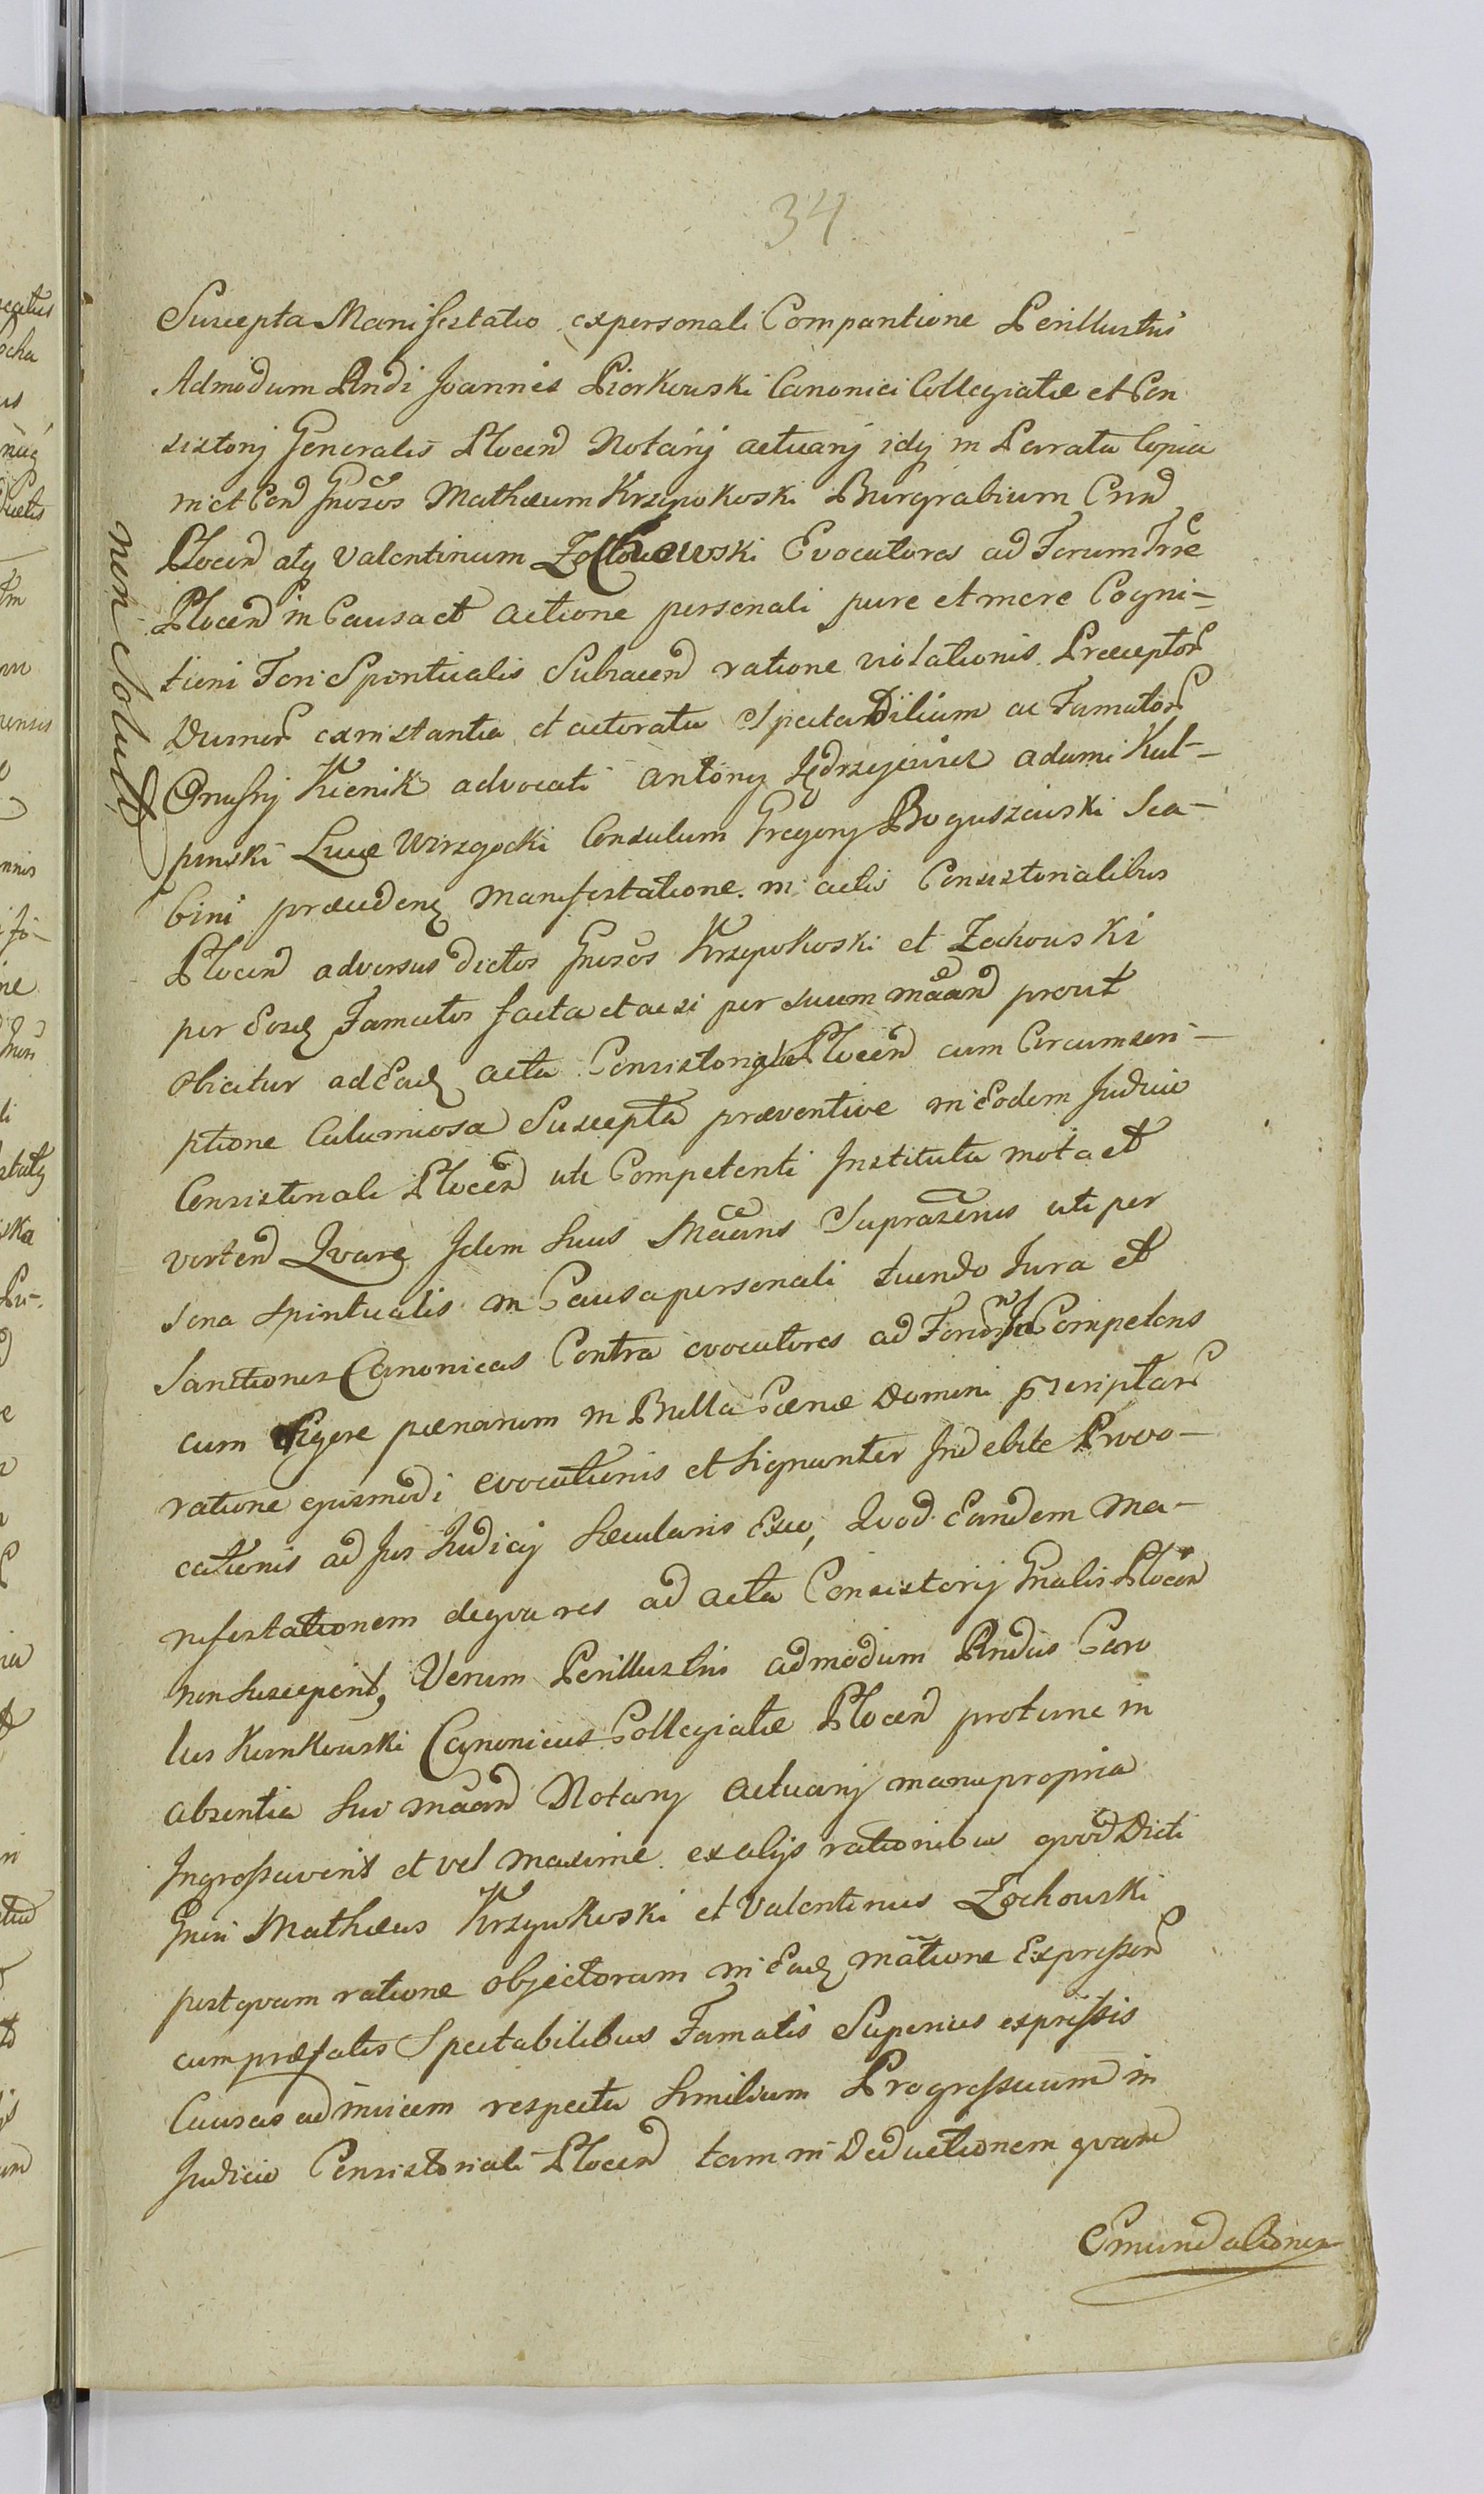 34
Suscepta Manifestatio ex personali Comparitione Perillustris
Admodum Rndi Joannis Piorkowski Canonici Collegiatæ et Con
sistorij Generalis Plocen Notarij actuarij idq in Parata Copia
in et Con Gnosos Mathæum Krzywkoski Burgrabium Crn
Plocen atq Valentinum Zochowski Evocatores ad Forum Trre
Plocen in Causa et actione personali pure et mere Cogni-
tioni Fori Spiritualis Subiacen ratione violationis Præceptor
Divinor ex instantia et actoratu Spectabilium ac Famator
Onufrij Kicnik advocati Antonij Jędrzejewicz Adami Kul-
pinski Lucæ Wirzgocki Consulum Gregorij Boguszewski Sca-
bini præceden Manifestatione in actis Consistorialibus
Plocen adversus dictos Gnosos Krzywkoski et Zochowski
per Eosq Famatos facta et acsi per suum mãan prout
obicitur ad Eadq acta Consistorij Plocen cum Circumscri-
ptione Calumniosa Suscepta præventive in Eodem Judicio
Consistoriali Plocen uti Competenti Instituta mota et
verten Qvare Idem Suus Mãans Suprascrius uti per
sona Spiritualis in Causa personali tuendo Jura et
Sanctiones Canonicas Contra evocatores ad Forum In Competens
cum Rigore pœnarum in Bulla Cœnæ Domini pscriptar
ratione ejusmodi evocationis et Signanter Indebite Provo-
cationis ad Jus Judicij Sæcularis Exco, Qvod Eandem Ma-
nifestationem deqva res ad Acta Consistorij Gnalis Plocen
non Susceperit, Verum Perillustris admodum Rndus Caro
lus Kumkowski Canonicus Collegiatæ Plocen protunc in
absentia Sui mãan Notarij Actuarij manu propria
Ingrossaverit et vel maxime ex alijs rationibus qvod Dicti
Gnosi Mathæus Krzywkoski et Valentinus Zochowski
postqvam ratione objectorum in Eadq mãtione Expressor
cum præfatis Spectabilibus Famatis Superius expressis
Causas ad invicem respectu Similium Progressuum in
Judicio Consistoriali Plocen tam in Deductionem qvam
Emundationem
non Solut